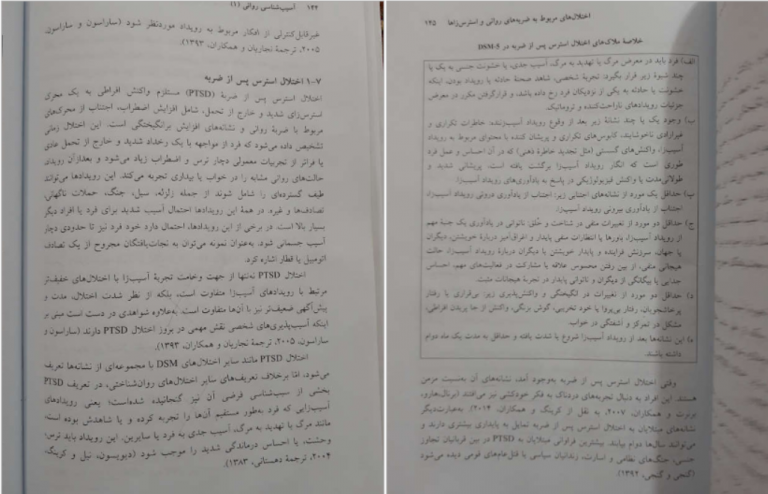 ۱۴۴ آسیب‌شناسی روانی (۱)
غیرقابل‌کنترلی از افکار مربوط به رویداد موردنظر شود (ساراسون و ساراسون،
۲۰۰۵، ترجمة نجاریان و همکاران، ۱۳۹۳).
۷-۱ اختلال استرس پس از ضربه
اختلال استرس پس از ضربة (PTSD) مستلزم واکنش افراطی به یک محرک
استرس‌زای شدید و خارج از تحمل، شامل افزایش اضطراب، اجتناب از محرک‌های
مربوط با ضربة روانی و نشانه‌های افزایش برانگیختگی است. این اختلال زمانی
تشخیص داده می‌شود که فرد از مواجهه با یک رخداد شدید و خارج از تحمل عادی
یا فراتر از تجربیات معمولی دچار ترس و اضطراب زیاد می‌شود و بعدازآن رویدی
حالت‌های روانی مشابه را در خواب یا بیداری تجربه می‌کند. این رویدادها می‌تواند
طیف گسترده‌ای را شامل شوند از جمله زلزله، سیل، جنگ، حملات ناگهانی،
تصادف‌ها و غیره. در همة این رویدادها احتمال آسیب شدید برای فرد یا افراد دیگر
بسیار بالا است. در برخی از این رویدادها، احتمال دارد خود فرد نیز تا حدودی دچار
آسیب جسمانی شود. به‌عنوان نمونه می‌توان به نجات‌یافتگان مجروح از یک تصادف
اتومبیل یا قطار اشاره کرد.
اختلال PTSD نه‌تنها از جهت وخامت تجربة آسیب‌زا با اختلال‌های خفیف‌تر
مرتبط با رویدادهای آسیب‌زا متفاوت است، بلکه از نظر شدت اختلال، مدت و
پیش‌آگهی ضعیف‌تر نیز با آن‌ها متفاوت است. به‌علاوه شواهدی در دست است مبنی بر
اینکه آسیب‌پذیری‌های شخصی نقش مهمی در بروز اختلال PTSD دارند (ساراسون و
ساراسون، ۲۰۰۵، ترجمة نجاریان و همکاران، ۱۳۹۳).
اختلال PTSD مانند سایر اختلال‌های DSM با مجموعه‌ای از نشانه‌ها تعریف
می‌شود، امّا برخلاف تعریف‌های سایر اختلال‌های روان‌شناختی، در تعریف PTSD
بخشی از سبب‌شناسی فرضی آن نیز گنجانیده شده‌است؛ یعنی رویدادهای
آسیب‌زایی که فرد به‌طور مستقیم آن‌ها را تجربه کرده و یا شاهدش بوده است؛
مانند مرگ یا تهدید به مرگ، آسیب جدی به فرد یا سایرین. این رویداد باید ترس،
وحشت، یا احساس درماندگی شدید را موجب شود (دیویسون، نیل و کرینگ،
۲۰۰۴، ترجمة دهستانی، ۱۳۸۳).
اختلال‌های مربوط به ضربه‌های روانی و استرس‌زاها ۱۴۵
خلاصة ملاک‌های اختلال استرس پس از ضربه در DSM-5
الف) فرد باید در معرض مرگ یا تهدید به مرگ، آسیب جدی، یا خشونت جنسی به یک یا
چند شیوة زیر قرار بگیرد: تجربة شخصی، شاهد صحنة حادثه یا رویداد بودن، اینکه
خشونت یا حادثه به یکی از نزدیکان فرد رخ داده باشد، و قرارگرفتن مکرر در معرض
جزئیات رویدادهای ناراحت‌کننده و تروماتیک
ب) وجود یک یا چند نشانة زیر بعد از وقوع رویداد آسیب‌زننده: خاطرات تکراری و
غیرارادی ناخوشایند، کابوس‌های تکراری و پریشان کننده با محتوای مربوط به رویداد
آسیب‌زا، واکنش‌های گسستی (مثل تجدید خاطرة ذهنی) که در آن احساس و عمل فرد
طوری است که انگار رویداد آسیب‌زا برگشت یافته است، پریشانی شدید و
طولانی‌مدت یا واکنش فیزیولوژیکی در پاسخ به یادآوری‌های رویداد آسیب‌زا.
پ) حداقل یک مورد از نشانه‌های اجتنابی زیر: اجتناب از یادآوری درونی رویداد آسیب‌زا،
اجتناب از یادآوری بیرونی رویداد آسیب‌زا.
ج) حداقل دو مورد از تغییرات منفی در شناخت و خُلق: ناتوانی در یادآوری یک جنبة مهم
از رویداد آسیب‌زا، باورها یا انتظارات منفی پایدار و اغراق‌آمیز دربارة خویشتن، دیگران
یا جهان، سرزنش فزاینده و پایدار خویشتن یا دیگران دربارة رویداد آسیب‌زا، حالت
هیجانی منفی، از بین رفتن محسوس علاقه یا مشارکت در فعالیت‌های مهم، احساس
جدایی یا بیگانگی از دیگران و ناتوانی پایدار در تجربة هیجانات مثبت.
د) حداقل دو مورد از تغییرات در انگیختگی و واکنش‌پذیری زیر: بی‌قراری یا رفتار
پرخاشجویان، رفتار بی‌پروا یا خود تخریبی، گوش بزنگی، واکنش از جا پریدن افراطی،
مشکل در تمرکز و آشفتگی در خواب.
ه) این نشانه‌ها بعد از رویداد آسیب‌زا شروع یا شدت یافته و حداقل به مدت یک ماه دوام
داشته باشند.
وقتی اختلال استرس پس از ضربه به‌وجود آمد، نشانه‌های آن به‌نسبت مزمن
هستند. این افراد به دنبال تجربه‌های دردناک به فکر خودکشی نیز می‌افتند (برنال‌هارو،
برنرت و همکاران، ۲۰۰۷، به نقل از کرینگ و همکاران، ۲۰۱۴) به‌عبارت‌دیگر
نشانه‌های مبتلایان به اختلال استرس پس از ضربه تمایل به پایداری بیشتری دارند و
می‌توانند سال‌ها دوام بیابند. بیشترین فراوانی مبتلایان به PTSD در بین قربانیان تجاوز
جنسی، جنگ‌های نظامی و اسارت، زندانیان سیاسی یا قتل‌عام‌های قومی دیده می‌شود
(گنجی و گنجی، ۱۳۹۲).